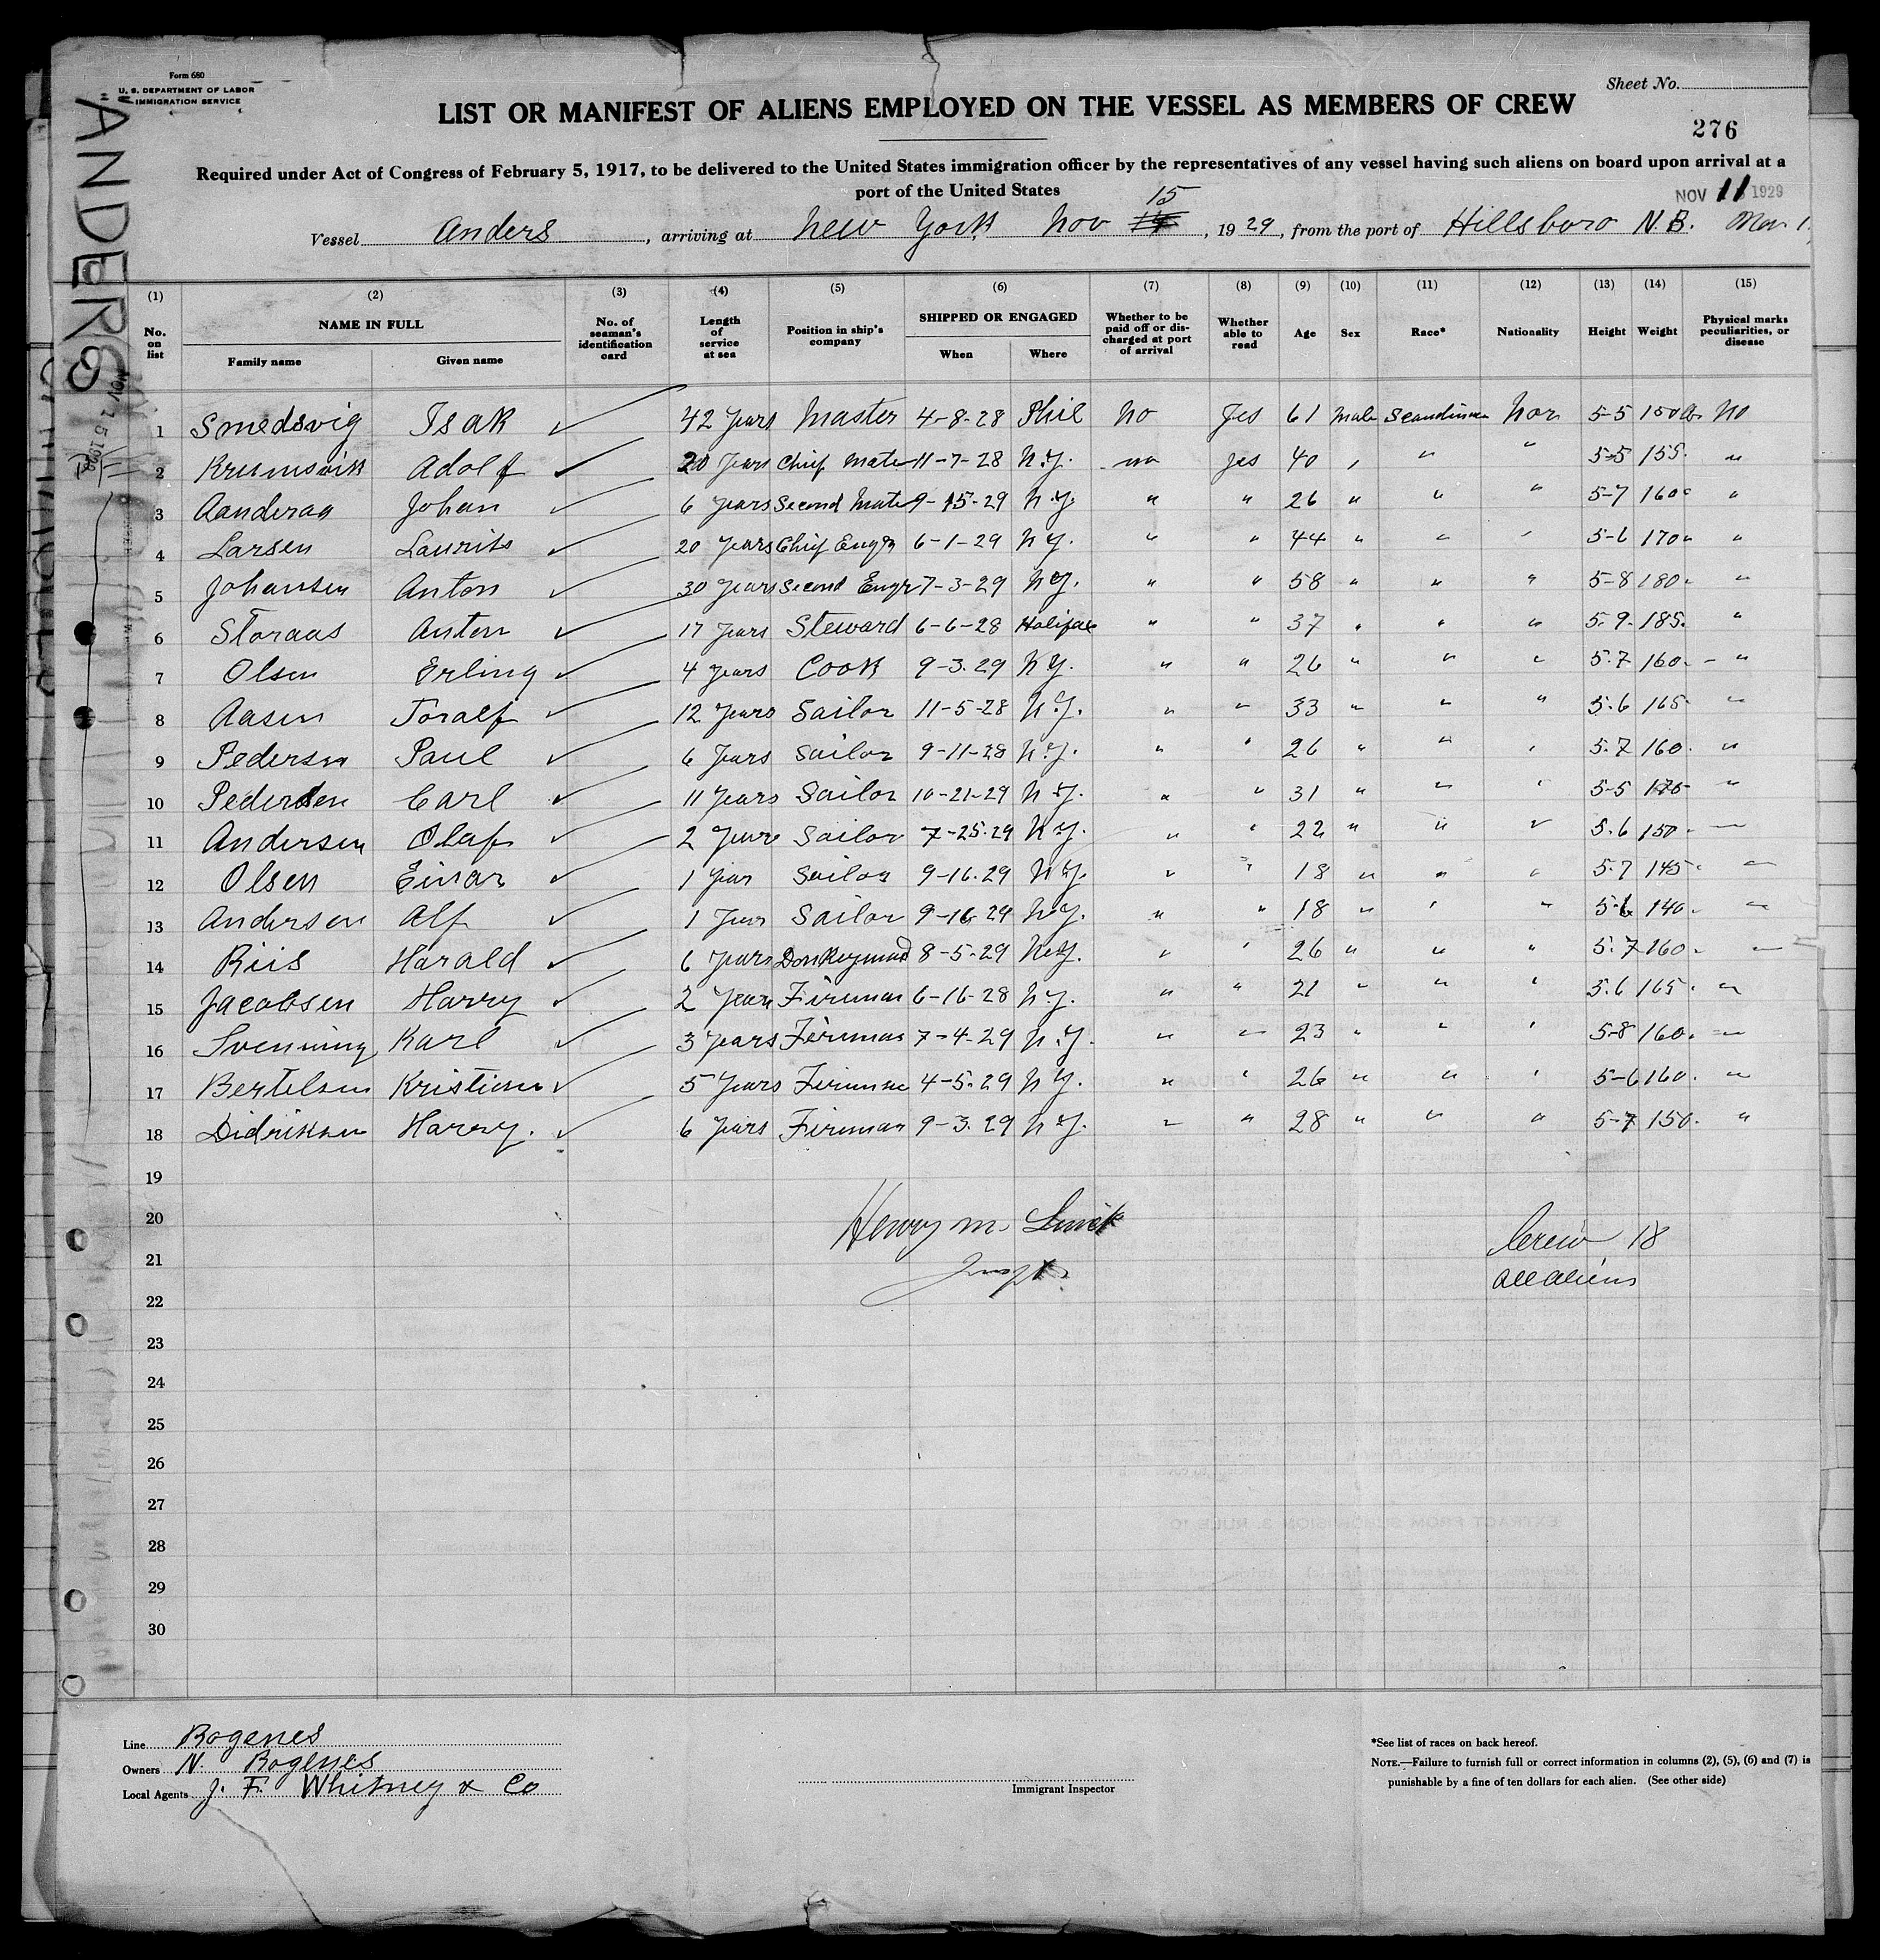 Form 680
U. S. DEPARTMENT OF LABOR
IMMIGRATION SERVICE
Sheet No.
LIST OR MANIFEST OF ALIENS EMPLOYED ON THE VESSEL AS MEMBERS OF CREW
276
Required under Act of Congress of February 5, 1917, to be delivered to the United States immigration officer by the representatives of any vessel having such aliens on board upon arrival at a
port of the United States
NOV 11 1929
Vessel Anders, arriving at New York Nov 15, 1929, from the port of Hillsboro N.B.
ANDERS
(1) (2) (3) (4) (5) (6) (7) (8) (9) (10) (11) (12) (13) (14) (15)
No. on list NAME IN FULL Family name Given name No. of seaman's identification card Length of service at sea Position in ship's company SHIPPED OR ENGAGED When Where Whether to be paid off or discharged at port of arrival Whether able to read Age Sex Race* Nationality Height Weight Physical marks peculiarities, or disease
1 Smedsvig Isak 42 Years Master 4-8-28 Phil No Yes 61 Male Scandinan Nor 5-5 150 No
2 Adolf 20 Years Chief Mate 11-7-28 N.Y. no yes 40 " " 5-5 155 "
3 Aanderaa Johan 6 Years Second Mate 9-15-29 N.Y. " " 26 " " " 5-7 160 "
4 Larsen Laurits 20 Years Chief Engr 6-1-29 N.Y. " " 44 " " " 5-6 170 "
5 Johansen Anton 30 Years Second Engr 7-3-29 N.Y. " " 58 " " " 5-8 180 "
6 Storaas Anton 17 Years Steward 6-6-28 Halifax " " 37 " " " 5-9 185 "
7 Olsen Erling 4 Years Cook 9-3-29 N.Y. " " 26 " " " 5-7 160 "
8 Aasen Toralf 12 Years Sailor 11-5-28 N.Y. " " 33 " " " 5-6 165 "
9 Pedersen Paul 6 Years Sailor 9-11-28 N.Y. " " 26 " " " 5-7 160 "
10 Pedersen Carl 11 Years Sailor 10-21-29 N.Y. " " 31 " " " 5-5 175 "
11 Andersen Olaf 2 Years Sailor 7-25-29 N.Y. " " 22 " " " 5-6 150 "
12 Olsen Einar 1 Year Sailor 9-16-29 N.Y. " " 18 " " " 5-7 145 "
13 Andersen Alf 1 Year Sailor 9-16-29 N.Y. " " 18 " " " 5-6 140 "
14 Riis Harald 6 Years Donkeyman 8-5-29 N.Y. " " 26 " " " 5-7 160 "
15 Jacobsen Harry 2 Years Fireman 6-16-28 N.Y. " " 21 " " " 5-6 165 "
16 Svenning Karl 3 Years Fireman 7-4-29 N.Y. " " 23 " " " 5-8 160 "
17 Bertelsen Kristian 5 Years Fireman 4-5-29 N.Y. " " 26 " " " 5-6 160 "
18 Didriksen Harry. 6 Years Fireman 9-3-29 N.Y. " " 28 " " " 5-7 150 "
19
20 Henry M. Crew 18
21 all aliens
22
23
24
25
26
27
28
29
30
Line Rogenes
Owners N. Rogenes
Local Agents J. F. Whitney & Co
Immigrant Inspector
*See list of races on back hereof.
NOTE.—Failure to furnish full or correct information in columns (2), (5), (6) and (7) is
punishable by a fine of ten dollars for each alien. (See other side)